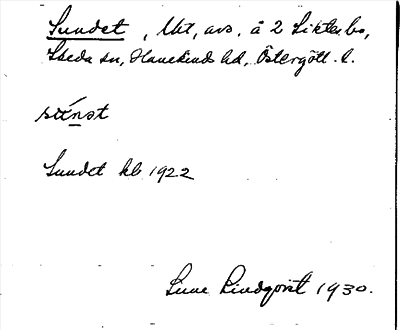 Sundet, Utt, avs. å 2 Siktesbo,
Skeda sn, Hanekinds hd, Östergötl. l.
sunst
Sundet kb 1922
Sune Lindqvist 1930.